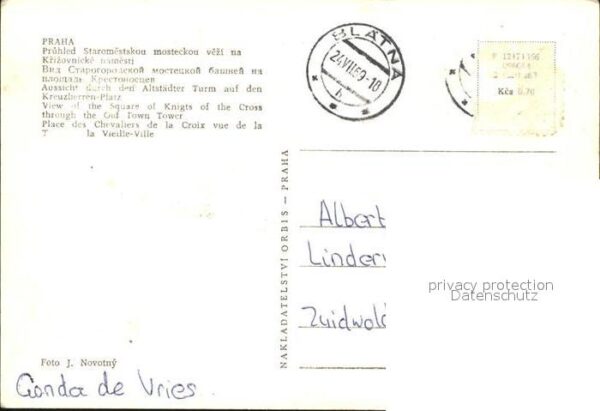 PRAHA
Průhled Staroměstskou mosteckou věží na
Křižovnické náměstí
Вид Старогородской мостецкой башней на
площадь Крестоносцев
Aussicht durch den Altstädter Turm auf den
Kreuzherren-Platz
View of the Square of Knigts of the Cross
through the Old Town Tower
Place des Chevaliers de la Croix vue de la
T la Vieille-Ville
BLATNÁ
24.VII.69-10
b
Kčs 0.70
NAKLADATELSTVÍ ORBIS — PRAHA
Albert
Linder
privacy protection
Datenschutz
Zuidwold
Foto J. Novotný
Gonda de Vries